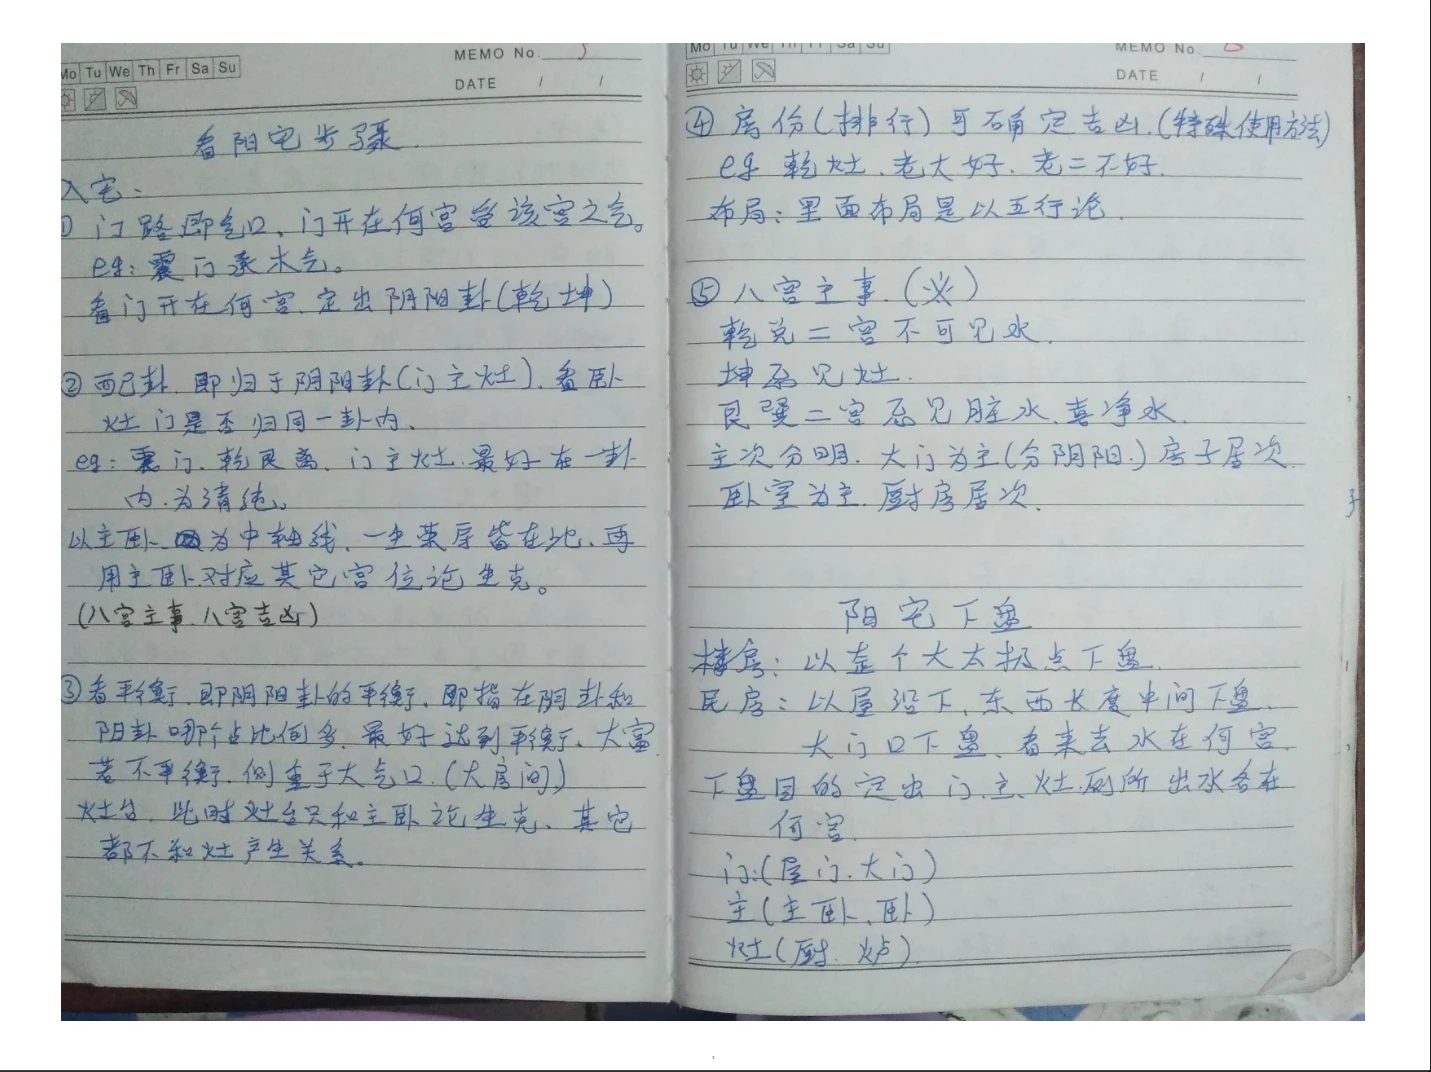 Mo Tu We Th Fr Sa Su
MEMO No. 5
DATE / /
看阳宅步骤.
入宅:
① 门路即气口、门开在何宫受该宫之气。
eg: 震门承木气。
看门开在何宫.定出阴阳卦(乾坤)
② 配卦.即归于阴阳卦(门主灶).看卧
灶门是否归同一卦内、
eg: 震门.乾艮离、门主灶.最好在一卦
内.为清纯。
以主卧 为中轴线、一生荣辱皆在此、再
用主卧对应其它宫位论生克。
(八宫主事.八宫吉凶)
③ 看平衡、即阴阳卦的平衡、即指在阴卦和
阳卦哪个占比例多、最好达到平衡、大富.
若不平衡.侧重于大气口.(大房间)
灶台.此时灶台只和主卧论生克、其它
都不和灶产生关系。
Mo Tu We Th Fr Sa Su
MEMO No.
DATE / /
④ 房份(排行)可确定吉凶.(特殊使用方法)
eg 乾灶.老大好.老二不好.
布局:里面布局是以五行论.
⑤ 八宫主事.(必)
乾兑二宫不可见水.
坤忌见灶.
艮巽二宫忌见脏水.喜净水.
主次分明.大门为主(分阴阳.)房子居次.
卧室为主.厨房居次.
阳宅下盘
楼房:以整个大太极点下盘.
民房:以屋沿下、东西长度中间下盘.
大门口下盘、看来去水在何宫.
下盘目的定出门、主、灶.厕所出水各在
何宫.
门:(屋门.大门)
主(主卧、卧)
灶(厨.炉).